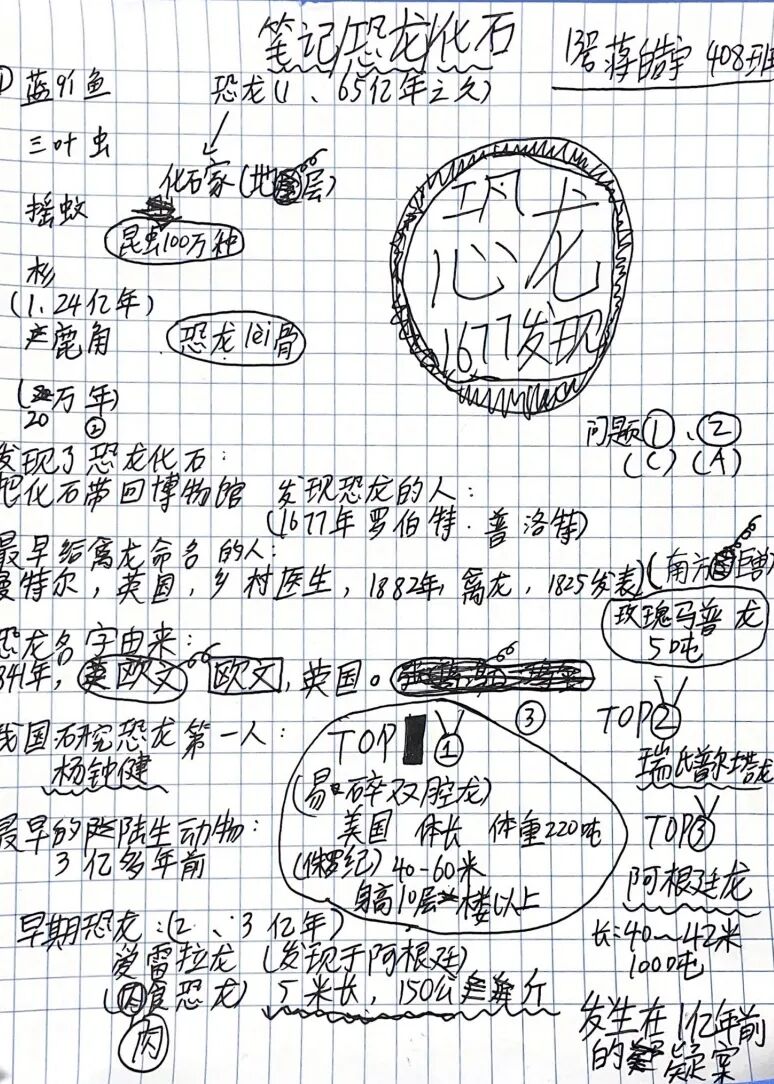 笔记/恐龙化石
13号蒋皓宇 408班
① 蓝91鱼
恐龙(1、65亿年之久)
三叶虫
化石家(地层)
摇蚊
昆虫100万种
杉
(1、24亿年)
鹿角
恐龙lèi骨
(20万年)
恐龙
1677发现
问题①、②
(C)(A)
②
发现了恐龙化石:
把化石带回博物馆
发现恐龙的人:
(1677年罗伯特·普洛特)
最早给禽龙命名的人:
曼特尔,英国,乡村医生,1882年,禽龙,1825发表
(南方巨兽)
玫瑰马普龙
5吨
恐龙名字由来:
841年,欧文 欧文,英国。
我国研究恐龙第一人:
杨钟健
③
TOP ①
(易碎双腔龙)
美国 体长 体重220吨
(侏罗纪)40-60米
身高10层楼以上
TOP②
瑞氏普尔塔龙
TOP③
阿根廷龙
长:40~42米
100吨
最早的陆生动物:
3亿多年前
早期恐龙:(2、3亿年)
爱雷拉龙(发现于阿根廷)
(肉食恐龙)5米长,150公斤
肉
发生在1亿年前
的疑案